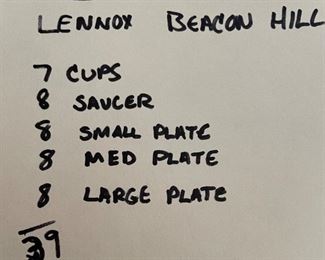 LENNOX BEACON HILL
7 CUPS
8 SAUCER
8 SMALL PLATE
8 MED PLATE
8 LARGE PLATE
39